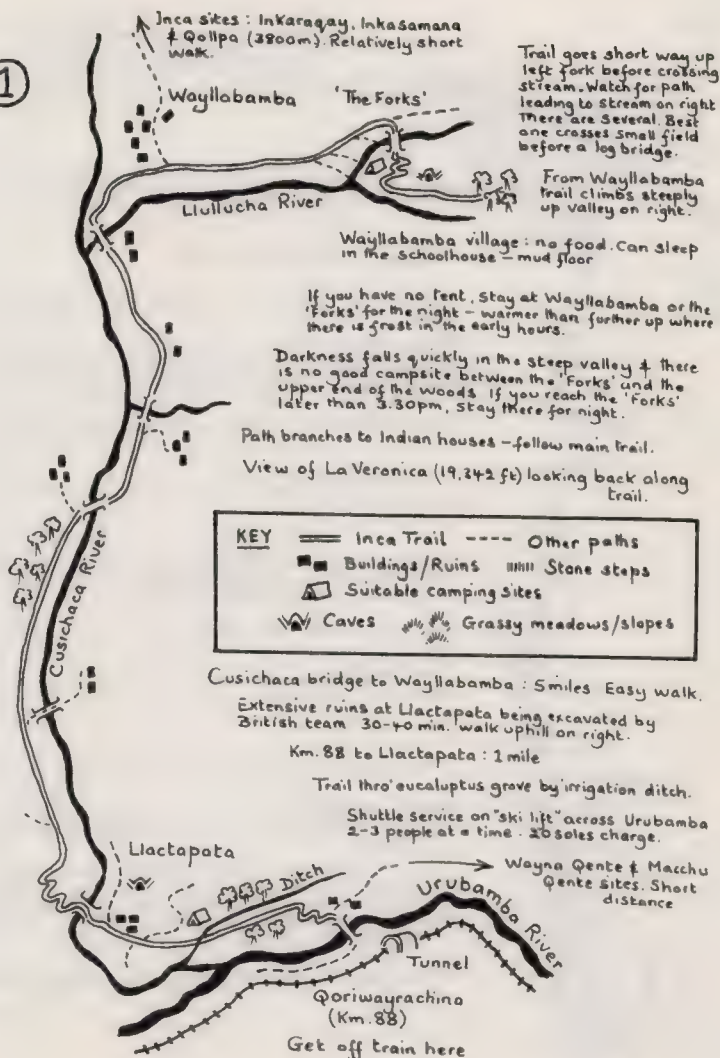 Inca sites : Inkaraqay, Inkasamana
& Qollpa (3800m). Relatively short
walk.
1
Trail goes short way up
left fork before crossing
stream. Watch for path
leading to stream on right
There are several. Best
one crosses small field
before a log bridge.
Wayllabamba
'The Forks'
From Wayllabamba
trail climbs steeply
up valley on right.
Llullucha River
Wayllabamba village : no food. Can sleep
in the schoolhouse – mud floor
If you have no tent, stay at Wayllabamba or the
'Forks' for the night – warmer than further up where
there is frost in the early hours.
Darkness falls quickly in the steep valley & there
is no good campsite between the 'Forks' and the
upper end of the woods If you reach the 'Forks'
later than 3.30pm, stay there for night.
Path branches to Indian houses – follow main trail.
View of La Veronica (19,342 ft) looking back along
trail.
KEY Inca Trail Other paths
Buildings/Ruins Stone steps
Suitable camping sites
Caves Grassy meadows/slopes
Cusichaca River
Cusichaca bridge to Wayllabamba : 5miles Easy walk.
Extensive ruins at Llactapata being excavated by
British team 30-40 min. walk uphill on right.
Km. 88 to Llactapata : 1 mile
Trail thro' eucaluptus grove by irrigation ditch.
Shuttle service on "ski lift" across Urubamba
2-3 people at a time . 20 soles charge.
Llactapata
Ditch
Wayna Qente & Macchu
Qente sites. Short
distance
Urubamba River
Tunnel
Qoriwayrachina
(Km. 88)
Get off train here